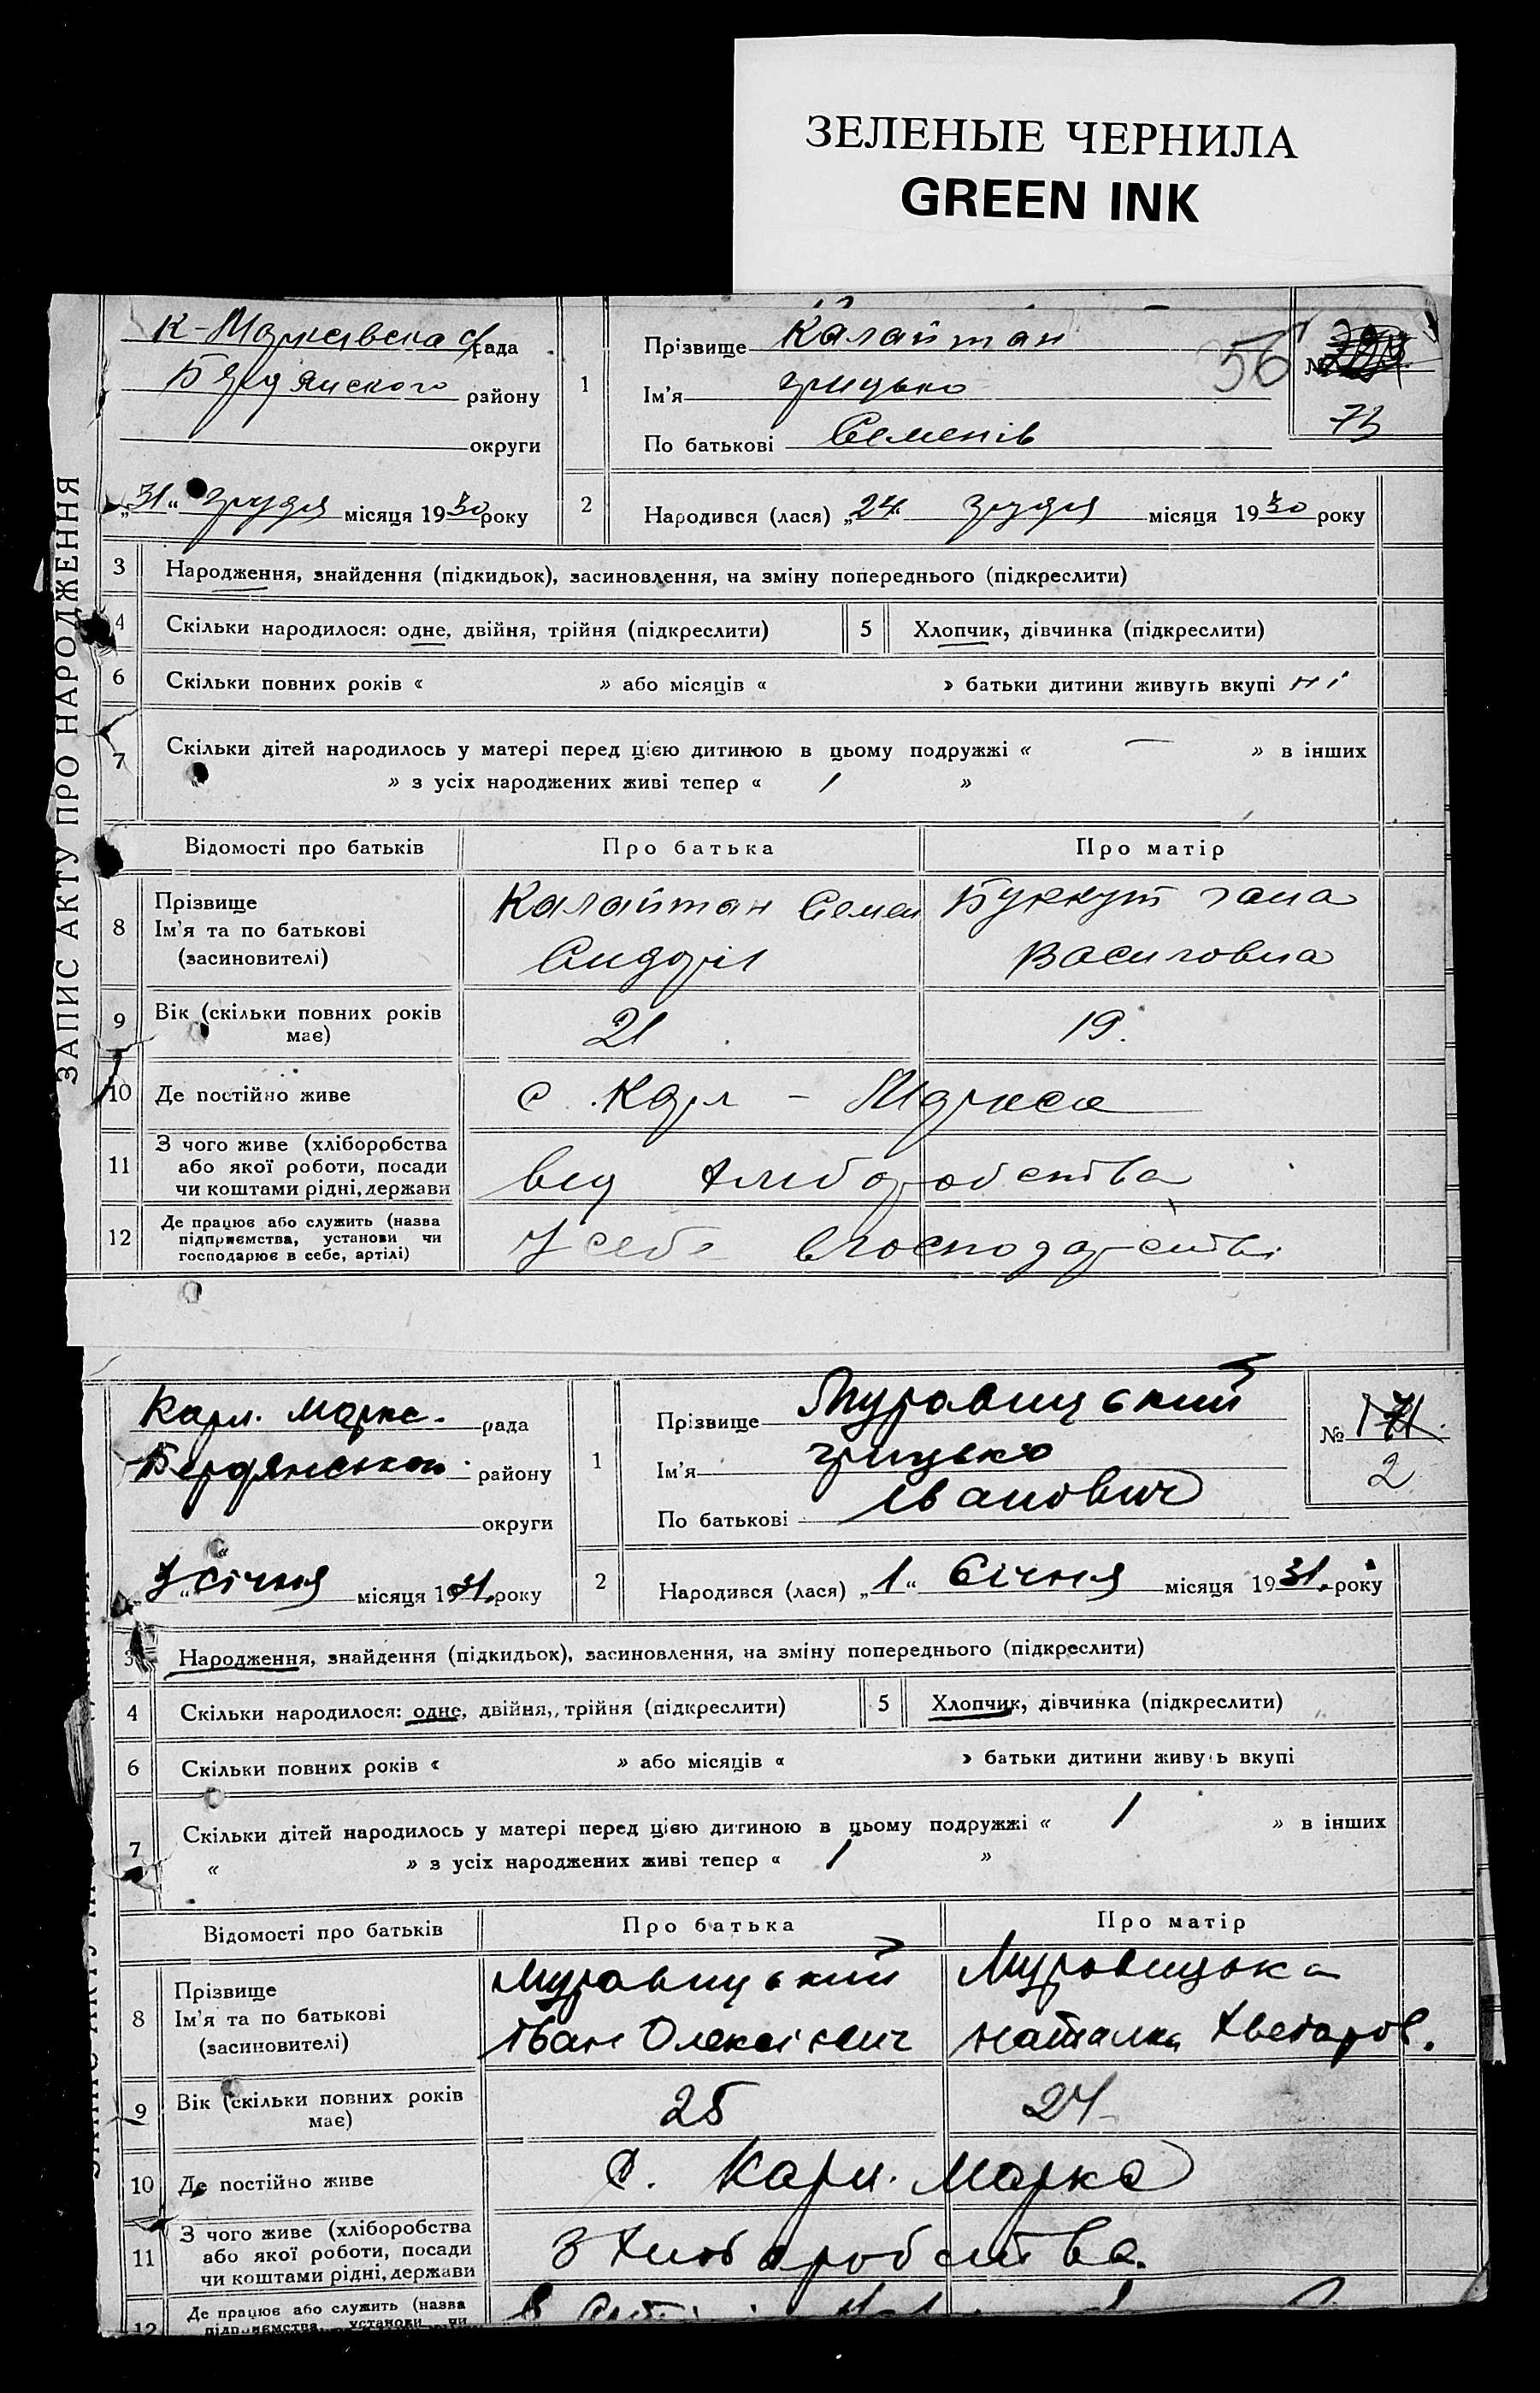 ЗЕЛЕНЫЕ ЧЕРНИЛА
GREEN INK
ЗАПИС АКТУ ПРО НАРОДЖЕННЯ
К-Марксівська с/рада
Бердянского району
округи
„31“ грудня місяця 1930 року
1
Прізвище Калайтан
Ім'я Грицько
По батькові Семенів
56
№
73
2
Народився (лася) „24“ грудня місяця 1930 року
3 Народження, знайдення (підкидьок), засиновлення, на зміну попереднього (підкреслити)
4 Скільки народилося: одне, двійня, трійня (підкреслити) 5 Хлопчик, дівчинка (підкреслити)
6 Скільки повних років « » або місяців « » батьки дитини живуть вкупі ні
7 Скільки дітей народилось у матері перед цією дитиною в цьому подружжі « — » в інших
« » з усіх народжених живі тепер « 1 »
Відомості про батьків Про батька Про матір
8 Прізвище
Ім'я та по батькові
(засиновителі)
Калайтан Семен
Сидорів
Гана
Василовна
9 Вік (скільки повних років
має)
21 19.
10 Де постійно живе с. Карл - Маркса
11 З чого живе (хліборобства
або якої роботи, посади
чи коштами рідні, держави
вид хліборобства
12 Де працює або служить (назва
підприємства, установи чи
господарює в себе, артілі)
У себе в господарстві
Карл. Маркс. рада
Бердянської району
округи
„7“ січня місяця 1931. року
1
Прізвище Муравицький
Ім'я Грицько
По батькові Іванович
№ 171.
2
2
Народився (лася) „1“ Січня місяця 1931. року
3 Народження, знайдення (підкидьок), засиновлення, на зміну попереднього (підкреслити)
4 Скільки народилося: одне, двійня, трійня (підкреслити) 5 Хлопчик, дівчинка (підкреслити)
6 Скільки повних років « » або місяців « » батьки дитини живуть вкупі
7 Скільки дітей народилось у матері перед цією дитиною в цьому подружжі « 1 » в інших
« » з усіх народжених живі тепер « 1 »
Відомості про батьків Про батька Про матір
8 Прізвище
Ім'я та по батькові
(засиновителі)
Муравицький
Іван Олексієвич
Муравицька
Наталка Хведаров.
9 Вік (скільки повних років
має)
25 24
10 Де постійно живе С. Карл. Маркса
11 З чого живе (хліборобства
або якої роботи, посади
чи коштами рідні, держави
З хліборобства.
12 Де працює або служить (назва
підприємства, установи чи